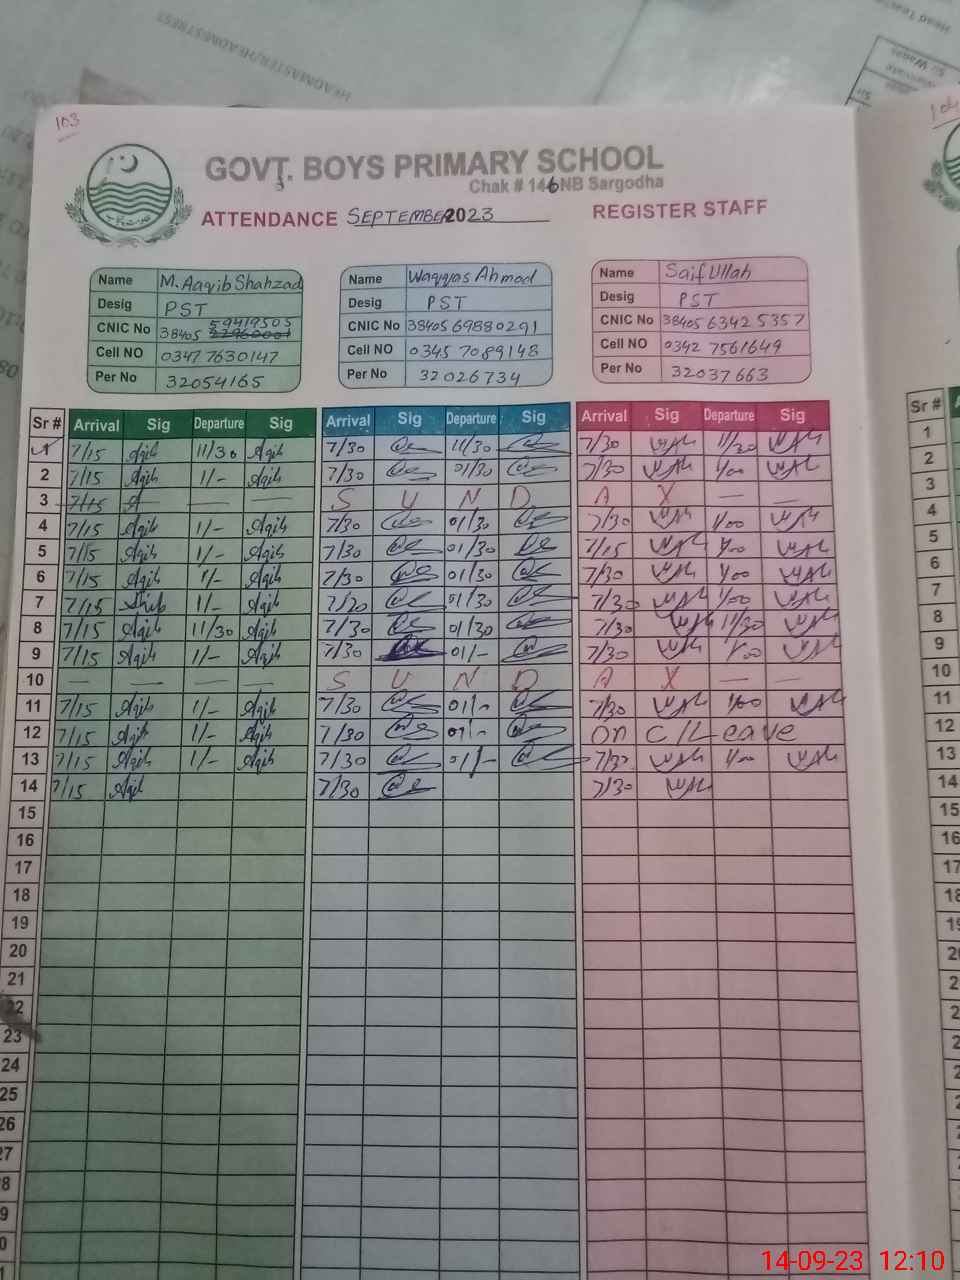 HEADMASTER/HEADMISTRESS
Head Teac
Sir Waqas
103
GOVT. BOYS PRIMARY SCHOOL
Chak # 146 NB Sargodha
ATTENDANCE SEPTEMBER 2023 REGISTER STAFF
Name M. Aaqib Shahzad Name Waqqas Ahmad Name Saif Ullah
Desig PST Desig PST Desig PST
CNIC No 38405 59419505 CNIC No 38405 69880291 CNIC No 38405 63425357
Cell NO 0347 7630147 Cell NO 0345 7089148 Cell NO 0342 7561649
Per No 32054165 Per No 32026734 Per No 32037663
Sr # Arrival Sig Departure Sig Arrival Sig Departure Sig Arrival Sig Departure Sig Sr #
1 7/15 Aqib 11/30 Aqib 7/30 11/30 7/30 11/30 1
2 7/15 Aqib 1/- Aqib 7/30 01/30 7/30 1/00 2
3 7/15 A — — S U N D A Y — — 3
4 7/15 Aqib 1/- Aqib 7/30 01/30 7/30 1/00 4
5 7/15 Aqib 1/- Aqib 7/30 01/30 7/15 1/00 5
6 7/15 Aqib 1/- Aqib 7/30 01/30 7/30 1/00 6
7 7/15 1/- Aqib 7/20 01/30 7/30 1/00 7
8 7/15 Aqib 11/30 Aqib 7/30 01/30 7/30 11/30 8
9 7/15 Aqib 1/- Aqib 7/30 01/- 7/30 1/00 9
10 — — — — S U N D A Y — — 10
11 7/15 Aqib 1/- Aqib 7/30 01/- 7/30 1/00 11
12 7/15 Aqib 1/- Aqib 7/30 01/- on C/Leave 12
13 7/15 Aqib 1/- Aqib 7/30 01/- 7/30 1/00 13
14 7/15 Aqib 7/30 7/30 14
15 15
16 16
17 17
18 18
19
20
21
22
23
24
25
26
27
14-09-23 12:10